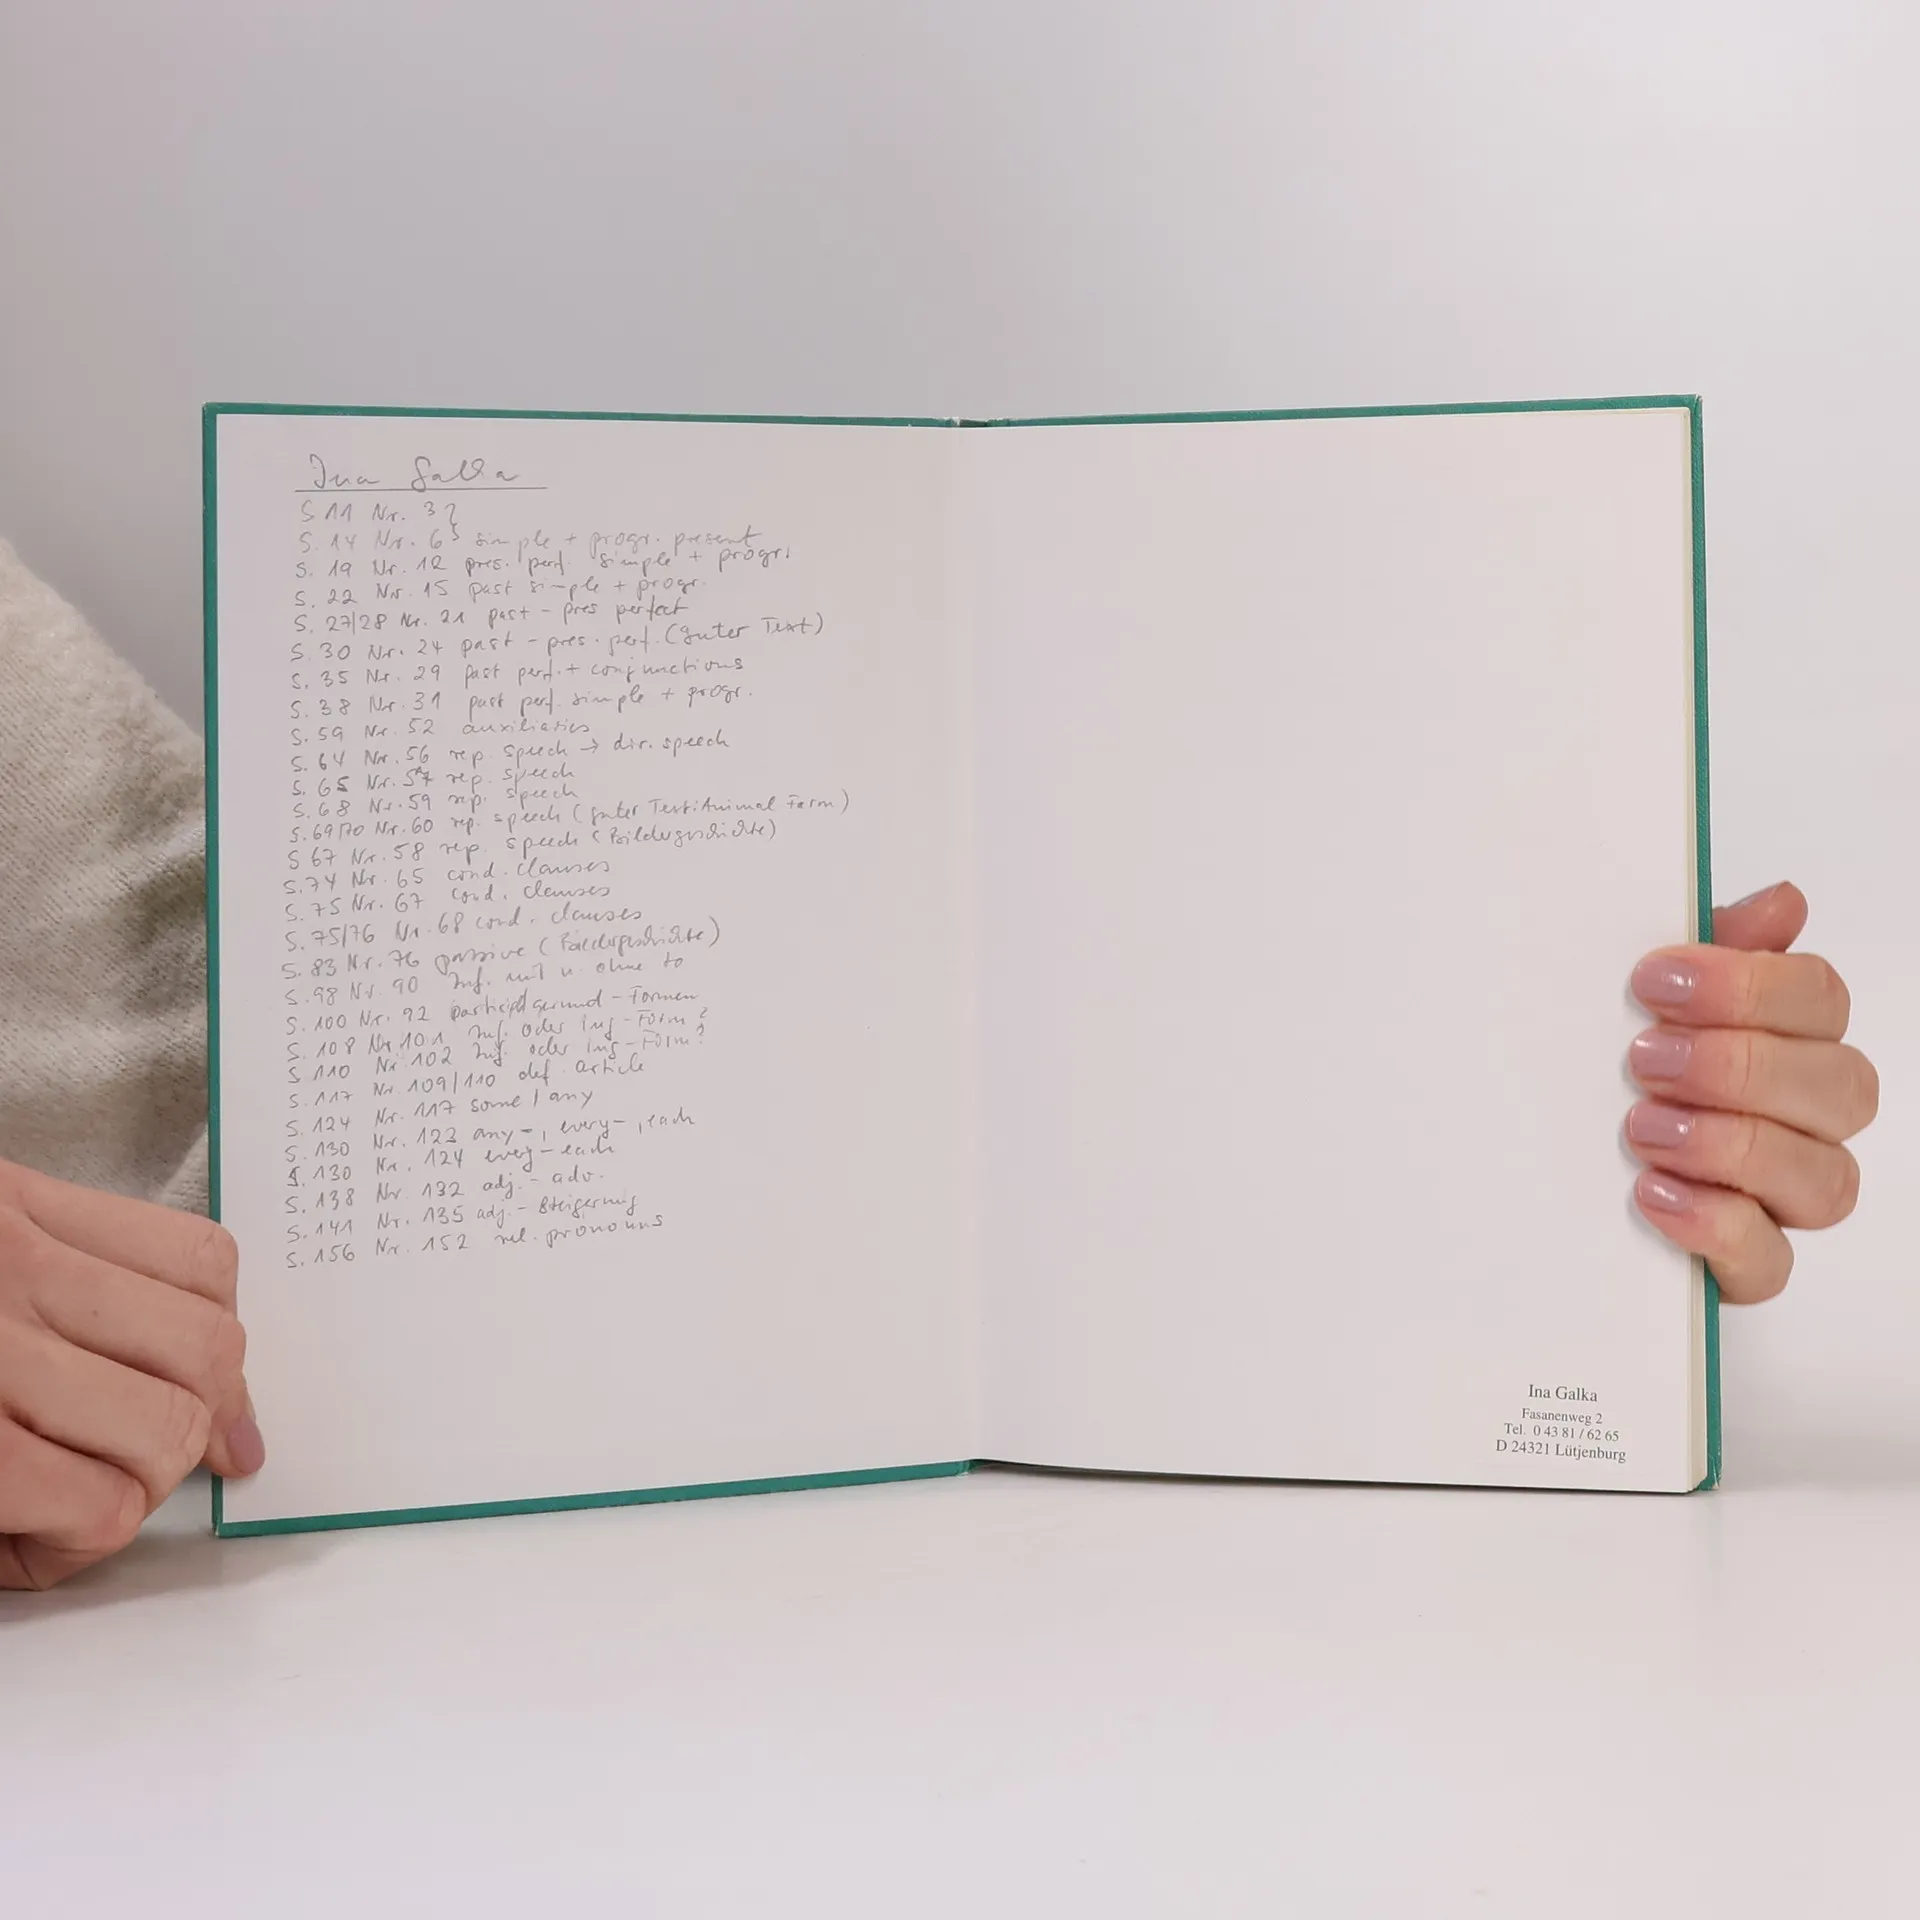 Ina Galka
S 11 Nr. 3 }
S. 14 Nr. 6 } simple + progr. present
S. 19 Nr. 12 pres. perf. simple + progr.
S. 22 Nr. 15 past simple + progr.
S. 27/28 Nr. 21 past - pres perfect
S. 30 Nr. 24 past - pres. perf. (guter Text)
S. 35 Nr. 29 past perf. + conjunctions
S. 38 Nr. 31 past perf. simple + progr.
S. 59 Nr. 52 auxiliaries
S. 64 Nr. 56 rep. speech → dir. speech
S. 65 Nr. 57 rep. speech
S. 68 Nr. 59 rep. speech
S. 69/70 Nr. 60 rep. speech (guter Text: Animal Farm)
S 67 Nr. 58 rep. speech (Bildergeschichte)
S. 74 Nr. 65 cond. clauses
S. 75 Nr. 67 cond. clauses
S. 75/76 Nr. 68 cond. clauses
S. 83 Nr. 76 passive (Bildergeschichte)
S. 98 Nr. 90 Inf. mit u. ohne to
S. 100 Nr. 92 gerund - Formen
S. 108 Nr. 101 Inf. oder ing-Form?
S 110 Nr. 102 Inf. oder ing-Form?
S. 117 Nr. 109/110 def. article
S. 124 Nr. 117 some / any
S. 130 Nr. 123 any-, every-, each
S. 130 Nr. 124 every - each
S. 138 Nr. 132 adj. - adv.
S. 141 Nr. 135 adj. - Steigerung
S. 156 Nr. 152 rel. pronouns
Ina Galka
Fasanenweg 2
Tel. 0 43 81 / 62 65
D 24321 Lütjenburg